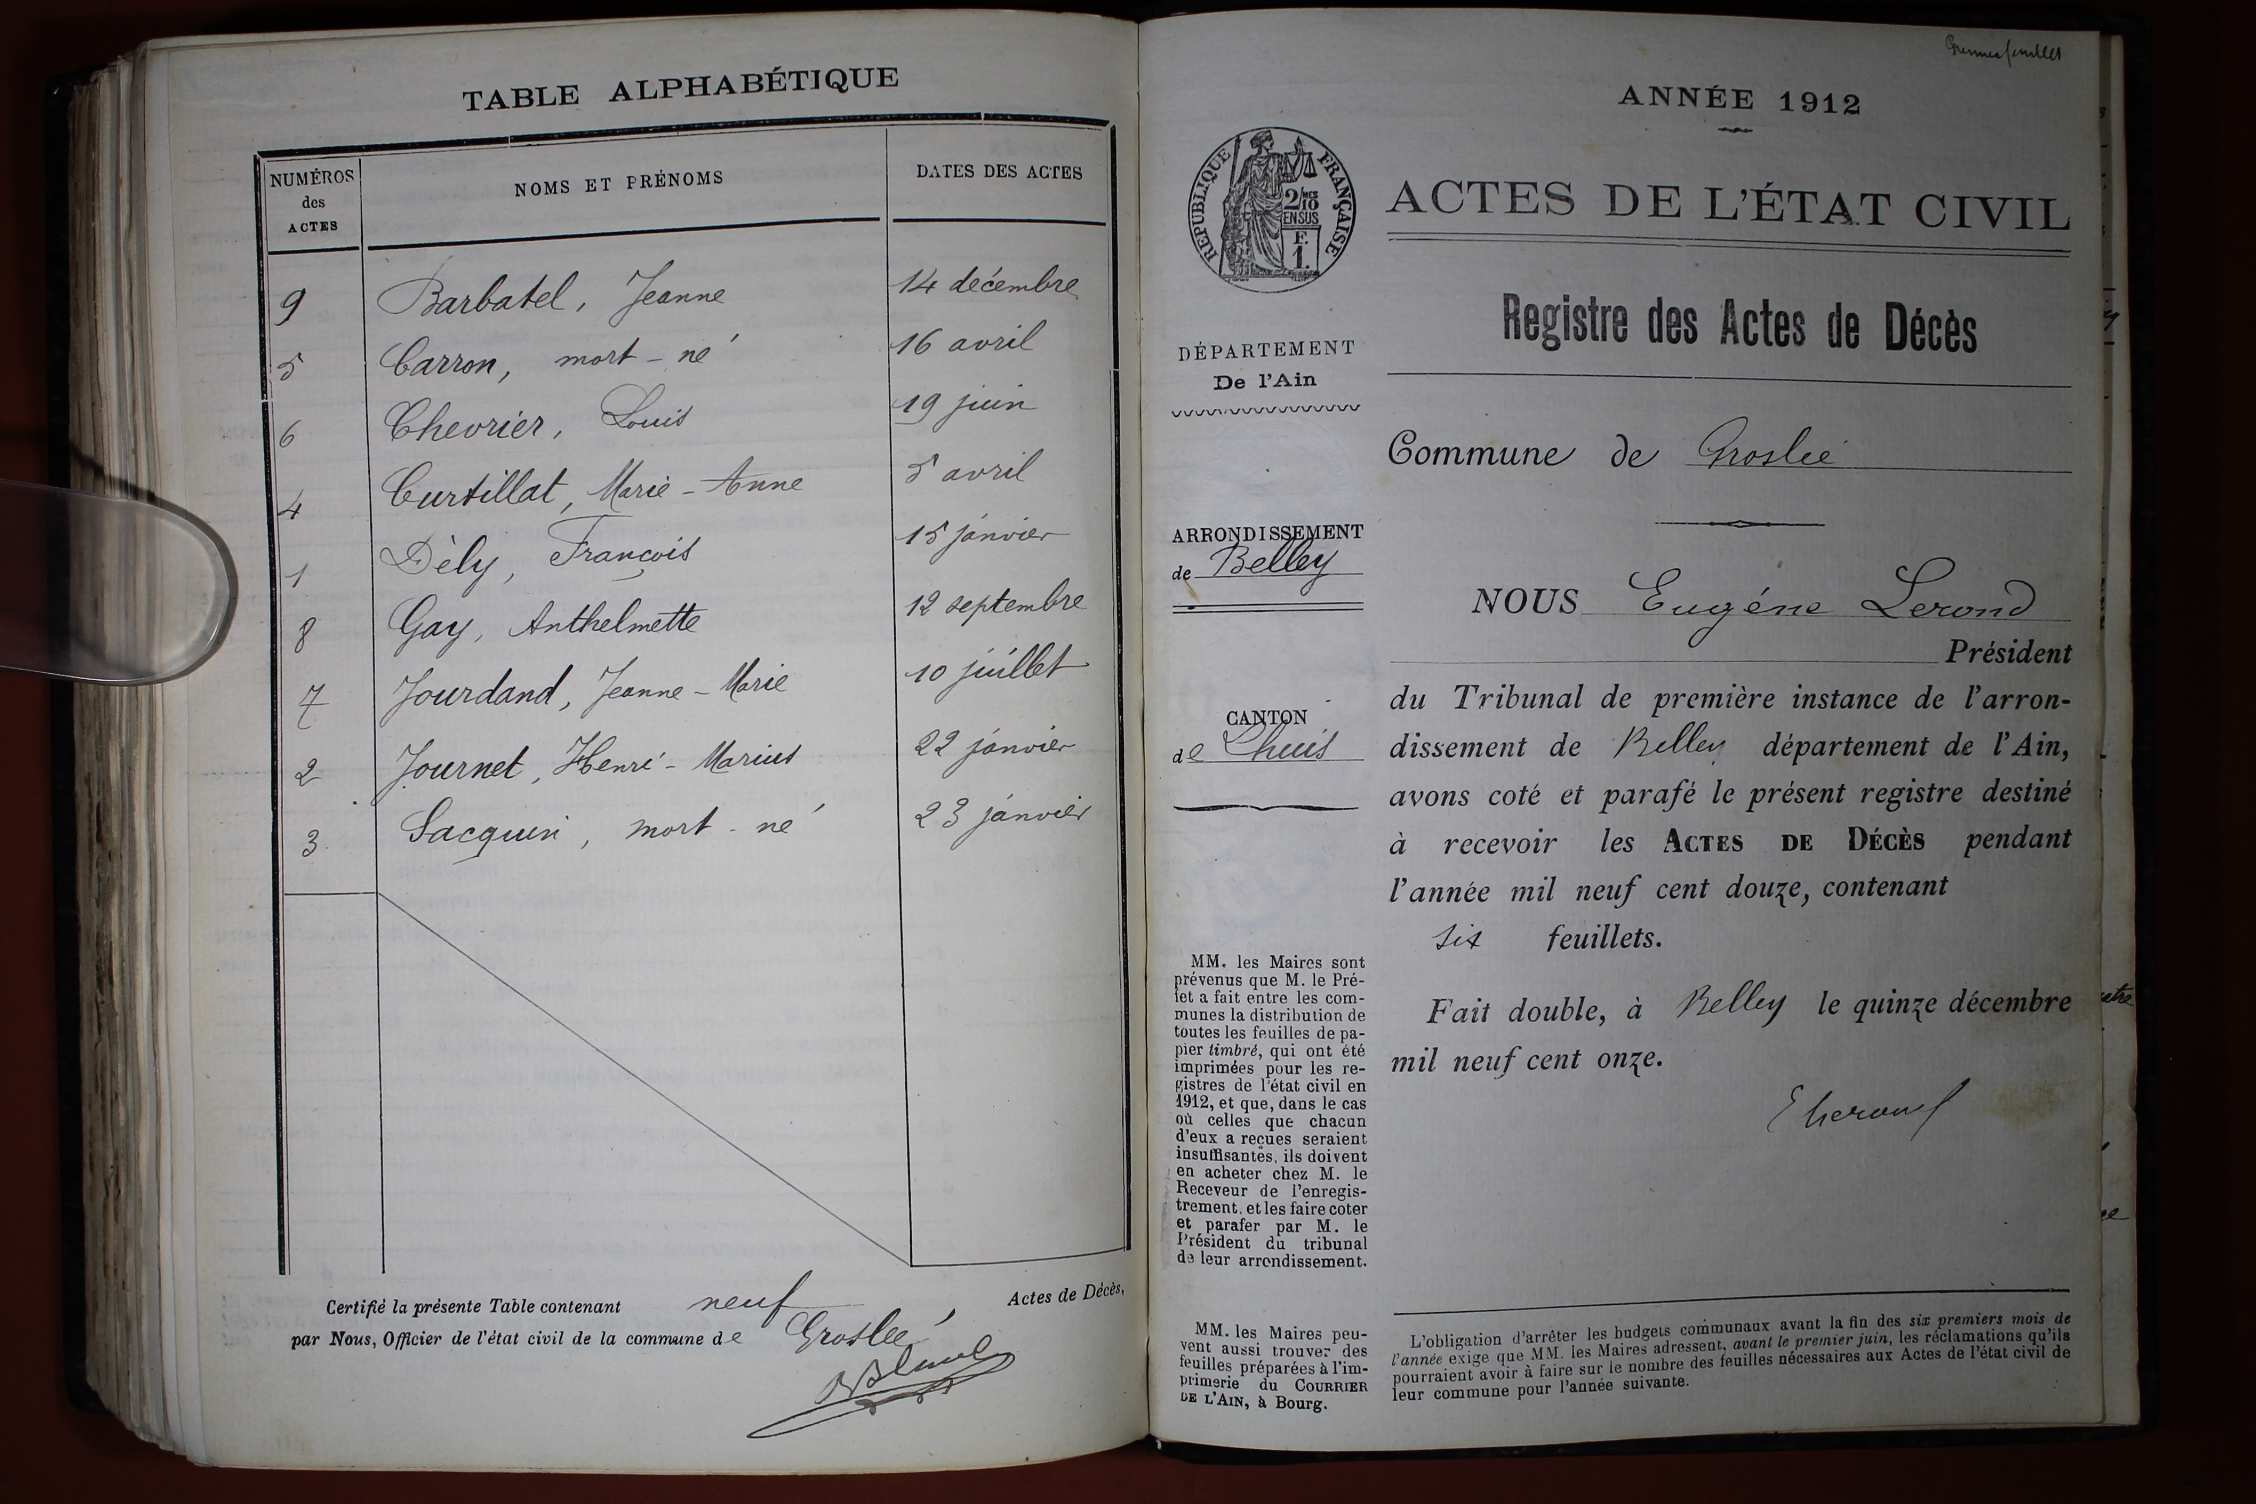 TABLE ALPHABÉTIQUE
NUMÉROS
des
ACTES
NOMS ET PRÉNOMS
DATES DES ACTES
9 Barbatel, Jeanne 14 décembre
5 Carron, mort-né 16 avril
6 Chevrier, Louis 19 juin
4 Curtillat, Marie-Anne 5 avril
1 Dèly, François 15 janvier
8 Gay, Anthelmette 12 septembre
7 Jourdand, Jeanne-Marie 10 juillet
2 Journet, Henri-Marius 22 janvier
3 Sacquin, mort-né 23 janvier
Certifié la présente Table contenant neuf Actes de Décès,
par Nous, Officier de l'état civil de la commune de Groslée
ANNÉE 1912
RÉPUBLIQUE FRANÇAISE
2/10MES
EN SUS
F.
1.
ACTES DE L'ÉTAT CIVIL
Registre des Actes de Décès
DÉPARTEMENT
De l'Ain
Commune de Groslée
ARRONDISSEMENT
de Belley
CANTON
de Lhuis
NOUS Eugéne Lerond
Président
du Tribunal de première instance de l'arron-
dissement de Belley département de l'Ain,
avons coté et parafé le présent registre destiné
à recevoir les ACTES DE DÉCÈS pendant
l'année mil neuf cent douze, contenant
six feuillets.
Fait double, à Belley le quinze décembre
mil neuf cent onze.
MM. les Maires sont
prévenus que M. le Pré-
fet a fait entre les com-
munes la distribution de
toutes les feuilles de pa-
pier timbré, qui ont été
imprimées pour les re-
gistres de l'état civil en
1912, et que, dans le cas
où celles que chacun
d'eux a reçues seraient
insuffisantes, ils doivent
en acheter chez M. le
Receveur de l'enregis-
trement, et les faire coter
et parafer par M. le
Président du tribunal
de leur arrondissement.
MM. les Maires peu-
vent aussi trouver des
feuilles préparées à l'im-
primerie du COURRIER
DE L'AIN, à Bourg.
L'obligation d'arrêter les budgets communaux avant la fin des six premiers mois de
l'année exige que MM. les Maires adressent, avant le premier juin, les réclamations qu'ils
pourraient avoir à faire sur le nombre des feuilles nécessaires aux Actes de l'état civil de
leur commune pour l'année suivante.